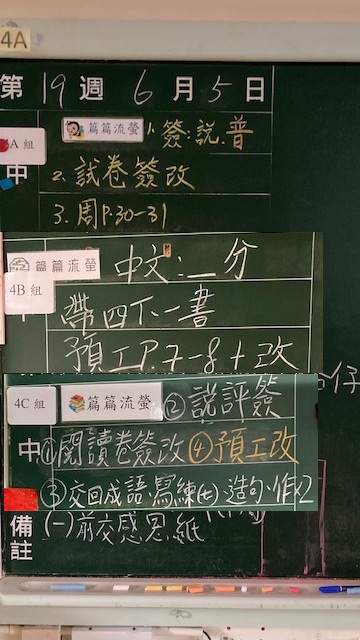 4A
第19週6月5日
A組
篇篇流螢
1.簽:説.普
中
2.試卷簽改
3.周P.30-31
篇篇流螢
中文:_分
4B組
帶四下一書
預工P.7-8+改
仔
4C組
篇篇流螢
②説評簽
中
①閱讀卷簽改 ④預工改
③交回成語.寫練(七).造句.作2
備註
(一)前交感恩紙